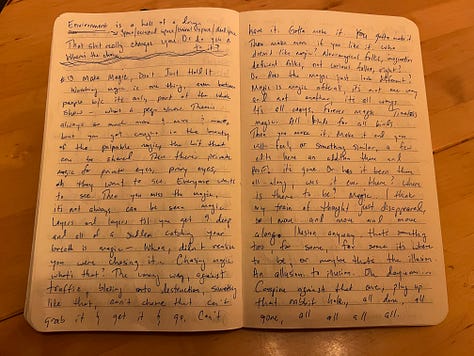 Environment is a hell of a drug.
→ Space/second space/liminal space/dead space
That shit really changes you. Or do you
to it?
Where's the
#13 Make Magic, Don't Just Hold It
Working magic is one thing even between
people b/c it's only part of the whole
show - what a peep show. There's
always so much more & more & more,
but you get caught in the beauty
of the palpable magic, the bit that
can be shared. Then there's private
magic for private eyes, prying eyes,
oh they want to see. Everyone wants
to see. Then you miss the magic,
it's not always can be seen magic.
Layers and layers til you get 9 deep
and it's a sudden catching your
breath is magic - Whoa, didn't realize
you were chasing it. Chasing magic
what's that? The wrong way, against
traffic, blazing into destruction, something
like that, can't chase that can't
grab it & get it & go, Can't
have it. Gotta make it. You gotta make it
Then make more if you like it. Who
doesn't like magic? Neurological folks, imagination
deficient folks, not curious folks, right?
Or does the magic just look different?
Magic is magic after all, it's not one way
and not another, it's all ways.
It's all ways forever magic, timeless
magic. All kinds for all kinds.
Then you move it. Make it and you
or something similar, a few
edits here an addition there and
poof, it's gone. Or has it been there
all along, was it ever there? Where
is there to be? Magic, I think
my train of thought just disappeared,
so I move and move and move
along. Illusion anyone, that's something
too for some, for some it's where
to be, or maybe that's the illusion.
An allusion to illusion. Oh
Conspire against that one, plug up
that rabbit hole, all done, all
gone, all all all all.